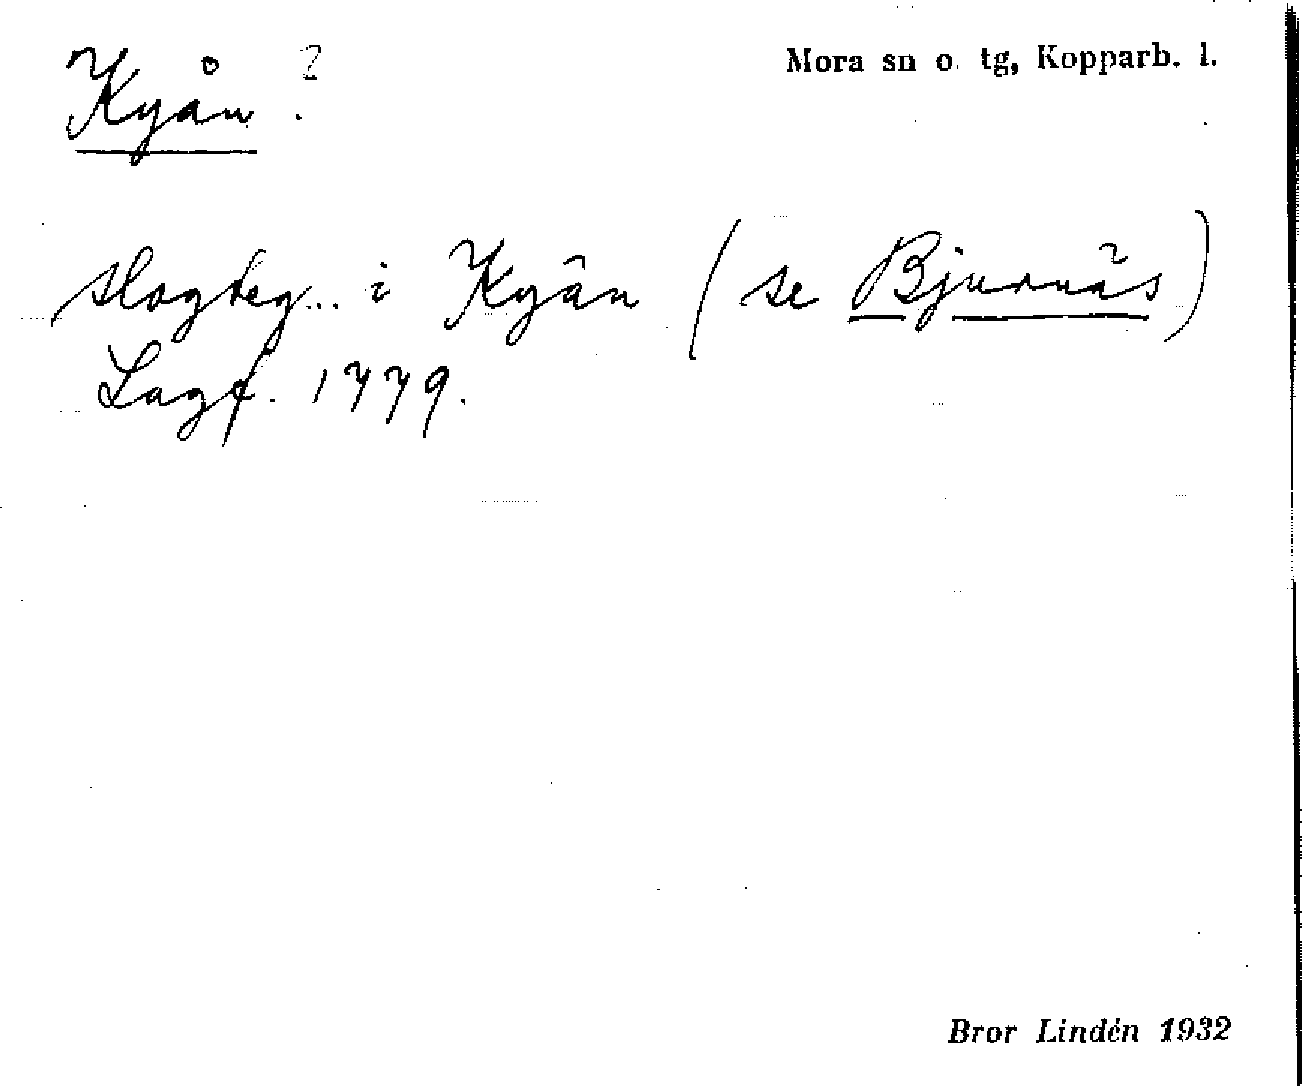 Kyån ?
Mora sn o. tg, Kopparb. l.
slogteg... i Kyân (se Bjurnäs)
Lagf. 1779.
Bror Lindén 1932